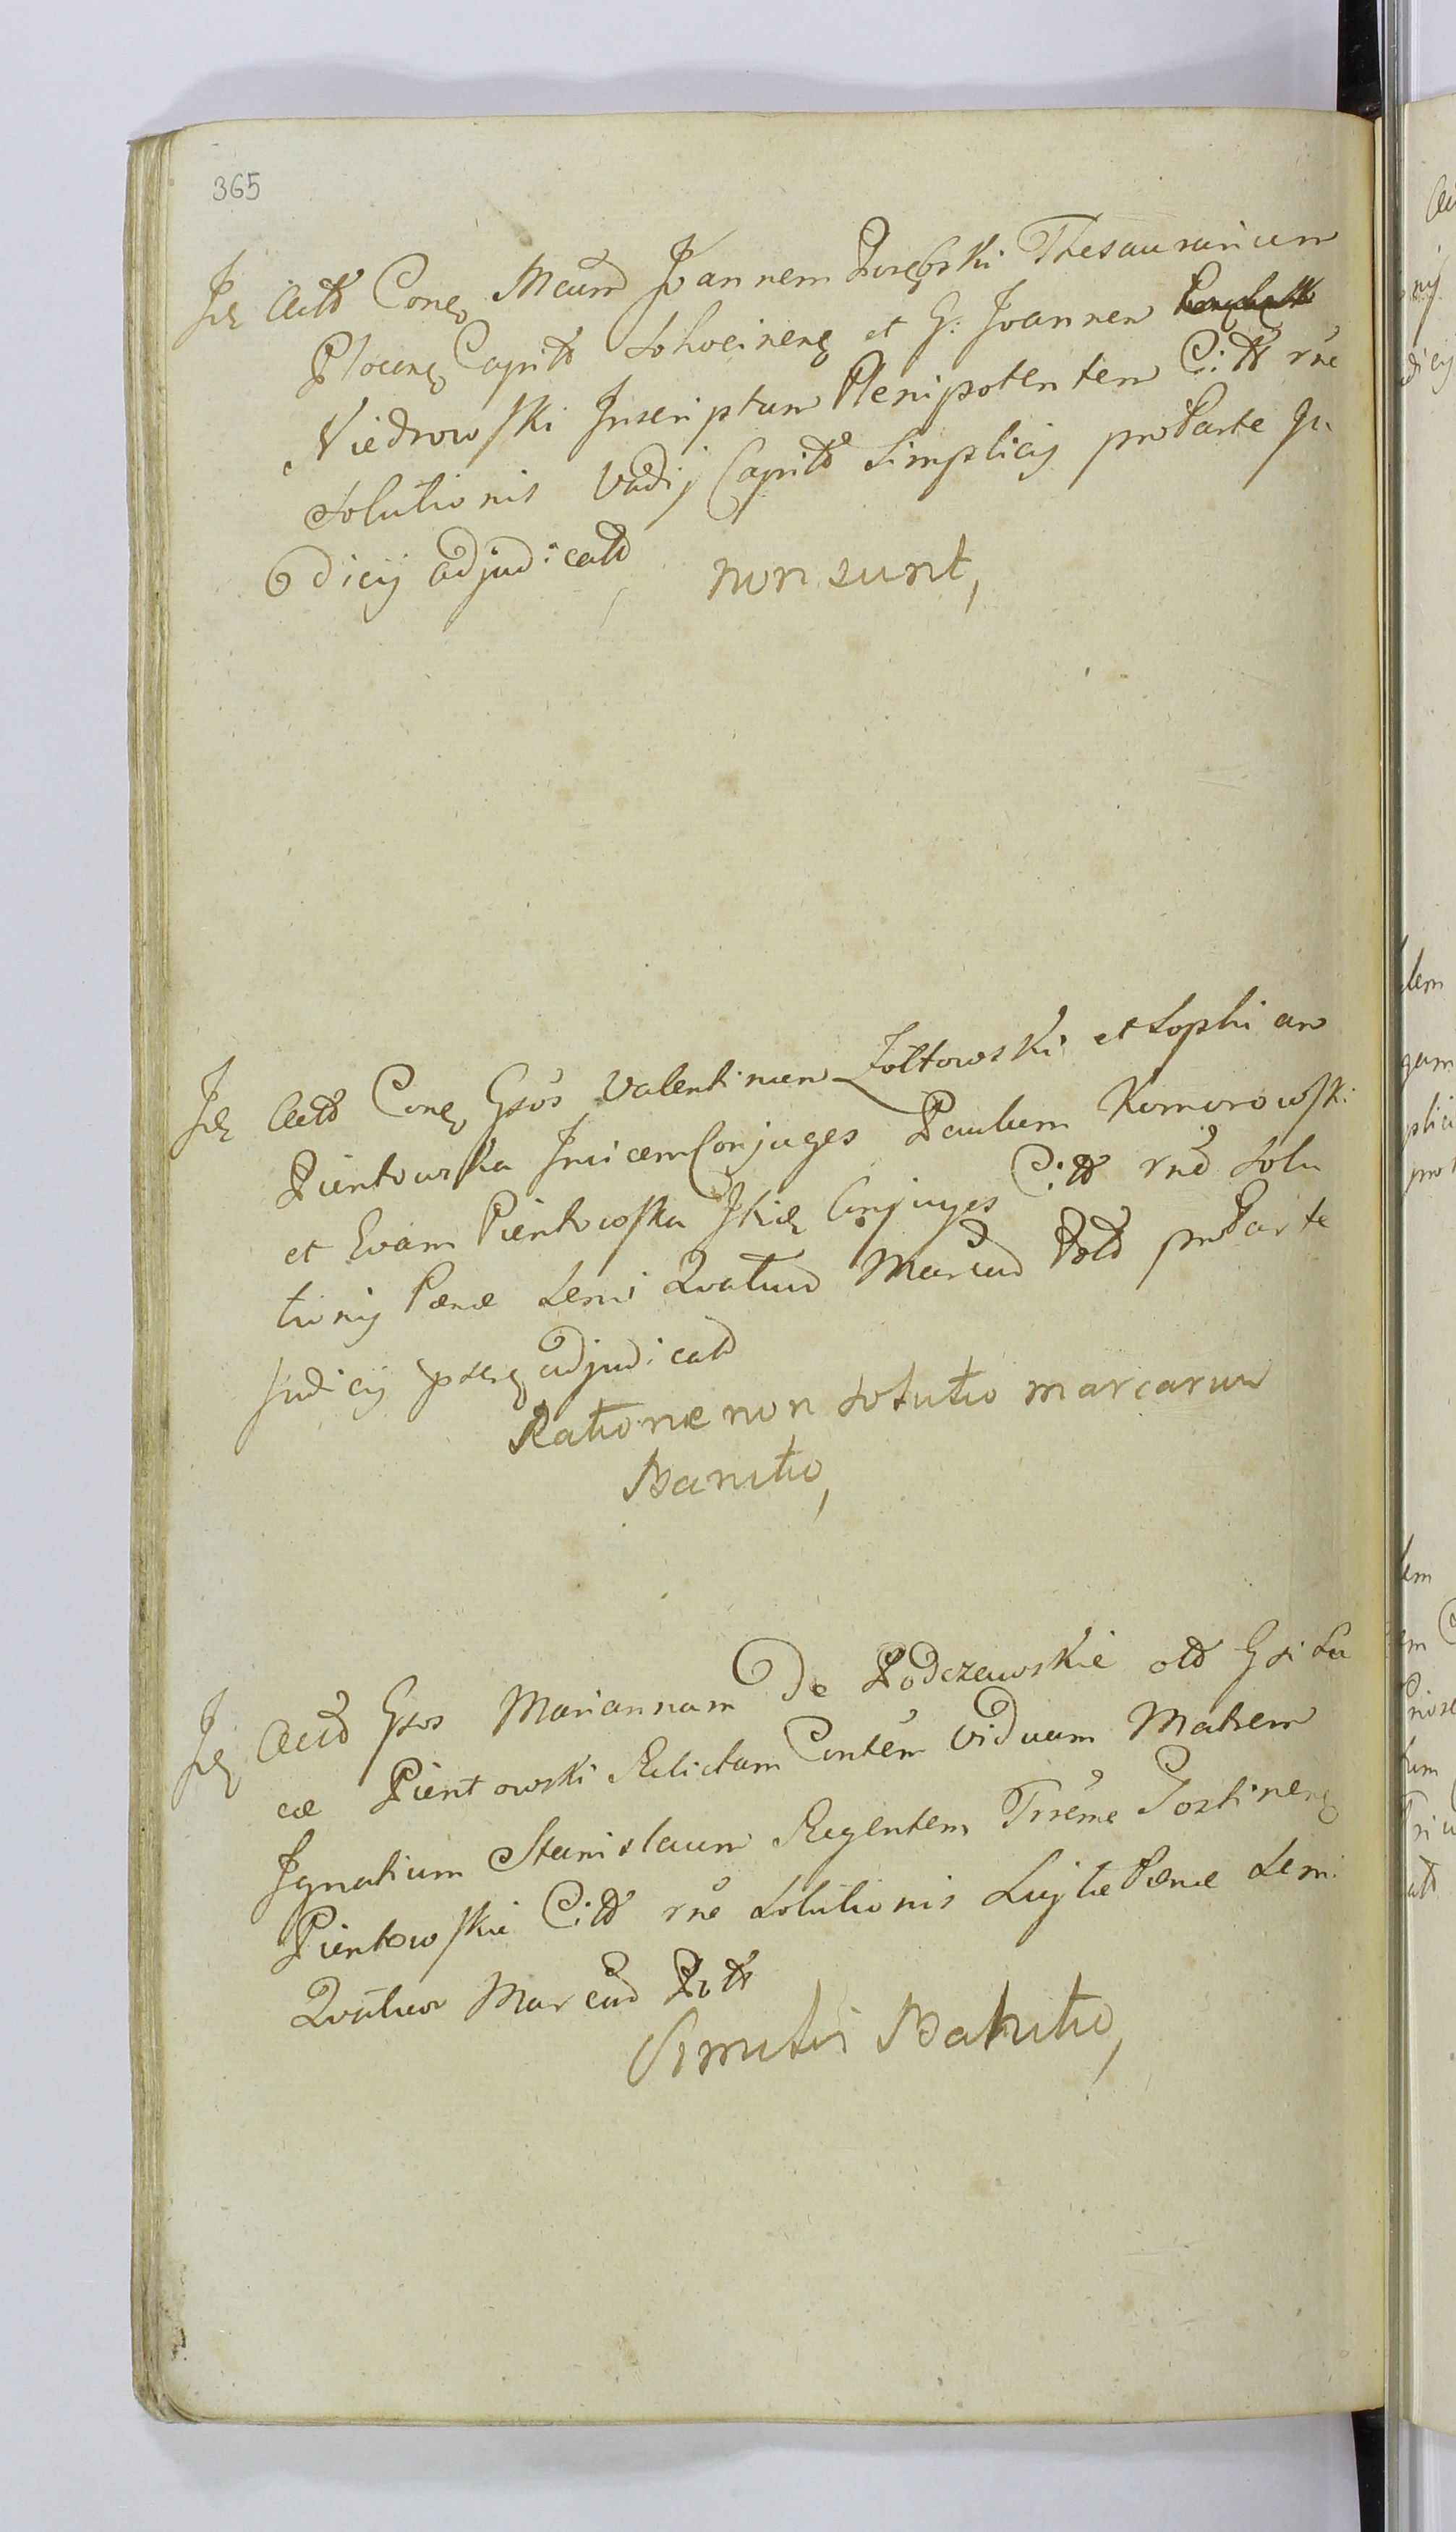 365
Idē Actd Conq Mcum Joannem Porębski Thesaurarium
Plocenꝫ Capitt Sohocinenꝫ et G: Joannem
Niedrowski Inscriptum Plenipotentem Citt rne
Solutionis Vadij Capitt Simplicis pro Parte Ju
dicij adjudicatt non sunt,
Idē Actt Conq Gsos Valentinum Zołtowski et Sophiam
Pientowska Invicem Conjuges Paulum Komorowski
et Evam Pientkowska Conjuges Citt rne Solu
tionis Pœnæ Semi Quatuor Marcar Pott pro Parte
Judicij psenꝫ adjudicatt
Rationæ non solutio marcarum
Banitio,
Idē Actt Gsos Mariannam De Podczawskie olt Gsi Lu
cæ Pientowski Relictam Contem Viduam Matrem
Ignatium Stanislaum Regentem Trrême Gostinenꝫ
Pientowskie Citt rne Solutionis Lujtæ Pœnæ Semi
Quatuor Marcar Pott
Similis Banitio,